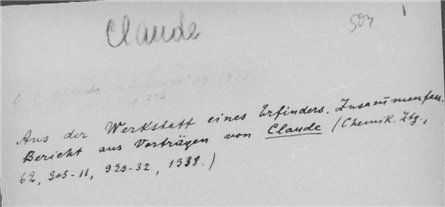 Claude
504
1
Aus der Werkstatt eines Erfinders. Zusammenfass.
Bericht aus Vorträgen von Claude (Chemik. Ztg.,
62, 905-11, 925-32, 1938.)